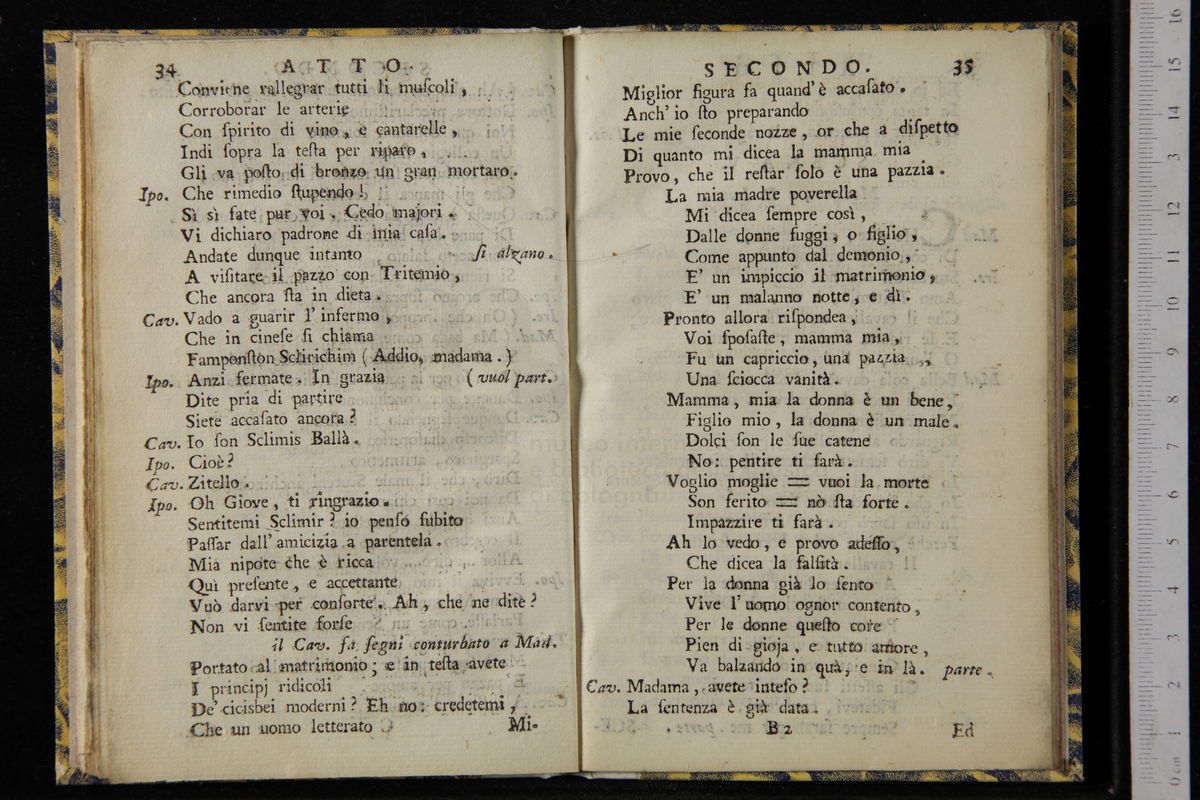 34 ATTO.
Conviene rallegrar tutti li muſcoli,
Corroborar le arterie
Con ſpirito di vino, e cantarelle,
Indi ſopra la teſta per riparo,
Gli va poſto di bronzo un gran mortaro.
Ipo. Che rimedio ſtupendo!
Sì sì fate pur voi. Cedo majori.
Vi dichiaro padrone di mia caſa.
Andate dunque intanto ſi alzano.
A viſitare il pazzo con Tritemio,
Che ancora ſta in dieta.
Cav. Vado a guarir l'infermo,
Che in cineſe ſi chiama
Famponſton Sclirichim (Addio, madama.)
Ipo. Anzi fermate. In grazia (vuol part.
Dite pria di partire
Siete accaſato ancora?
Cav. Io ſon Sclimis Ballà.
Ipo. Cioè?
Cav. Zitello.
Ipo. Oh Giove, ti ringrazio.
Sentitemi Sclimir? io penſo ſubito
Paſſar dall'amicizia a parentela.
Mia nipote che è ricca
Quì preſente, e accettante
Vuò darvi per conſorte. Ah, che ne dite?
Non vi ſentite forſe
il Cav. fa ſegni conturbato a Mad.
Portato al matrimonio; e in teſta avete
I principj ridicoli
De' cicisbei moderni? Eh no: credetemi,
Che un uomo letterato
Mi-
SECONDO. 35
Miglior figura fa quand'è accaſato.
Anch'io ſto preparando
Le mie ſeconde nozze, or che a diſpetto
Di quanto mi dicea la mamma mia
Provo, che il reſtar ſolo è una pazzia.
La mia madre poverella
Mi dicea ſempre così,
Dalle donne fuggi, o figlio,
Come appunto dal demonio,
E' un impiccio il matrimonio,
E' un malanno notte, e dì.
Pronto allora riſpondea,
Voi ſpoſaſte, mamma mia,
Fu un capriccio, una pazzia,,
Una ſciocca vanità.
Mamma, mia la donna è un bene,
Figlio mio, la donna è un male.
Dolci ſon le ſue catene
No: pentire ti farà.
Voglio moglie = vuoi la morte
Son ferito = nò ſta forte.
Impazzire ti farà.
Ah lo vedo, e provo adeſſo,
Che dicea la falſità.
Per la donna già lo ſento
Vive l'uomo ognor contento,
Per le donne queſto core
Pien di gioja, e tutto amore,
Va balzando in quà, e in là. parte.
Cav. Madama, avete inteſo?
La ſentenza è già data.
B 2 Ed